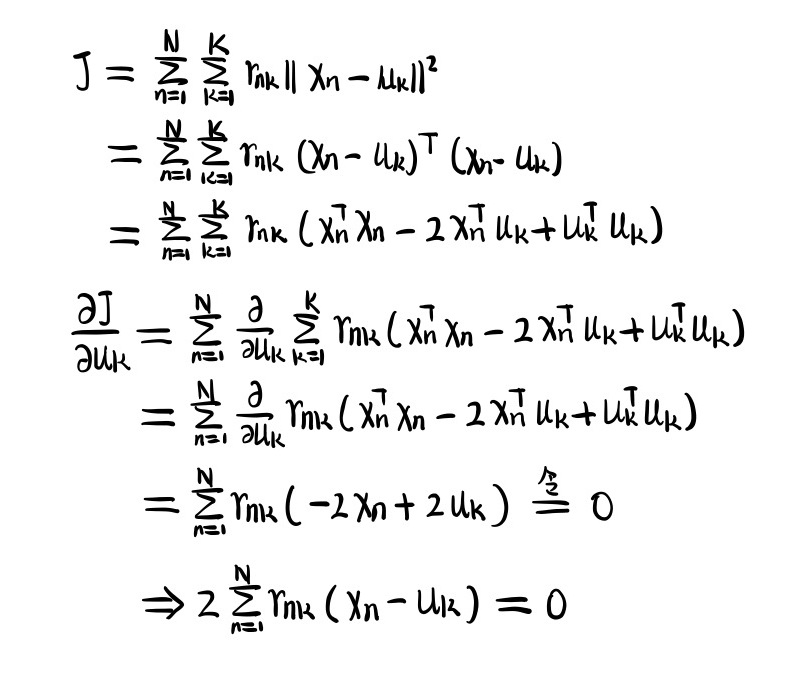 J = \sum_{n=1}^{N} \sum_{k=1}^{K} r_{nk} || x_n - u_k ||^2
= \sum_{n=1}^{N} \sum_{k=1}^{K} r_{nk} (x_n - u_k)^T (x_n - u_k)
= \sum_{n=1}^{N} \sum_{k=1}^{K} r_{nk} (x_n^T x_n - 2 x_n^T u_k + u_k^T u_k)
\frac{∂J}{∂u_k} = \sum_{n=1}^{N} \frac{∂}{∂u_k} \sum_{k=1}^{K} r_{nk} (x_n^T x_n - 2 x_n^T u_k + u_k^T u_k)
= \sum_{n=1}^{N} \frac{∂}{∂u_k} r_{nk} (x_n^T x_n - 2 x_n^T u_k + u_k^T u_k)
= \sum_{n=1}^{N} r_{nk} (-2 x_n + 2 u_k) \overset{令}{=} 0
⇒ 2 \sum_{n=1}^{N} r_{nk} (x_n - u_k) = 0